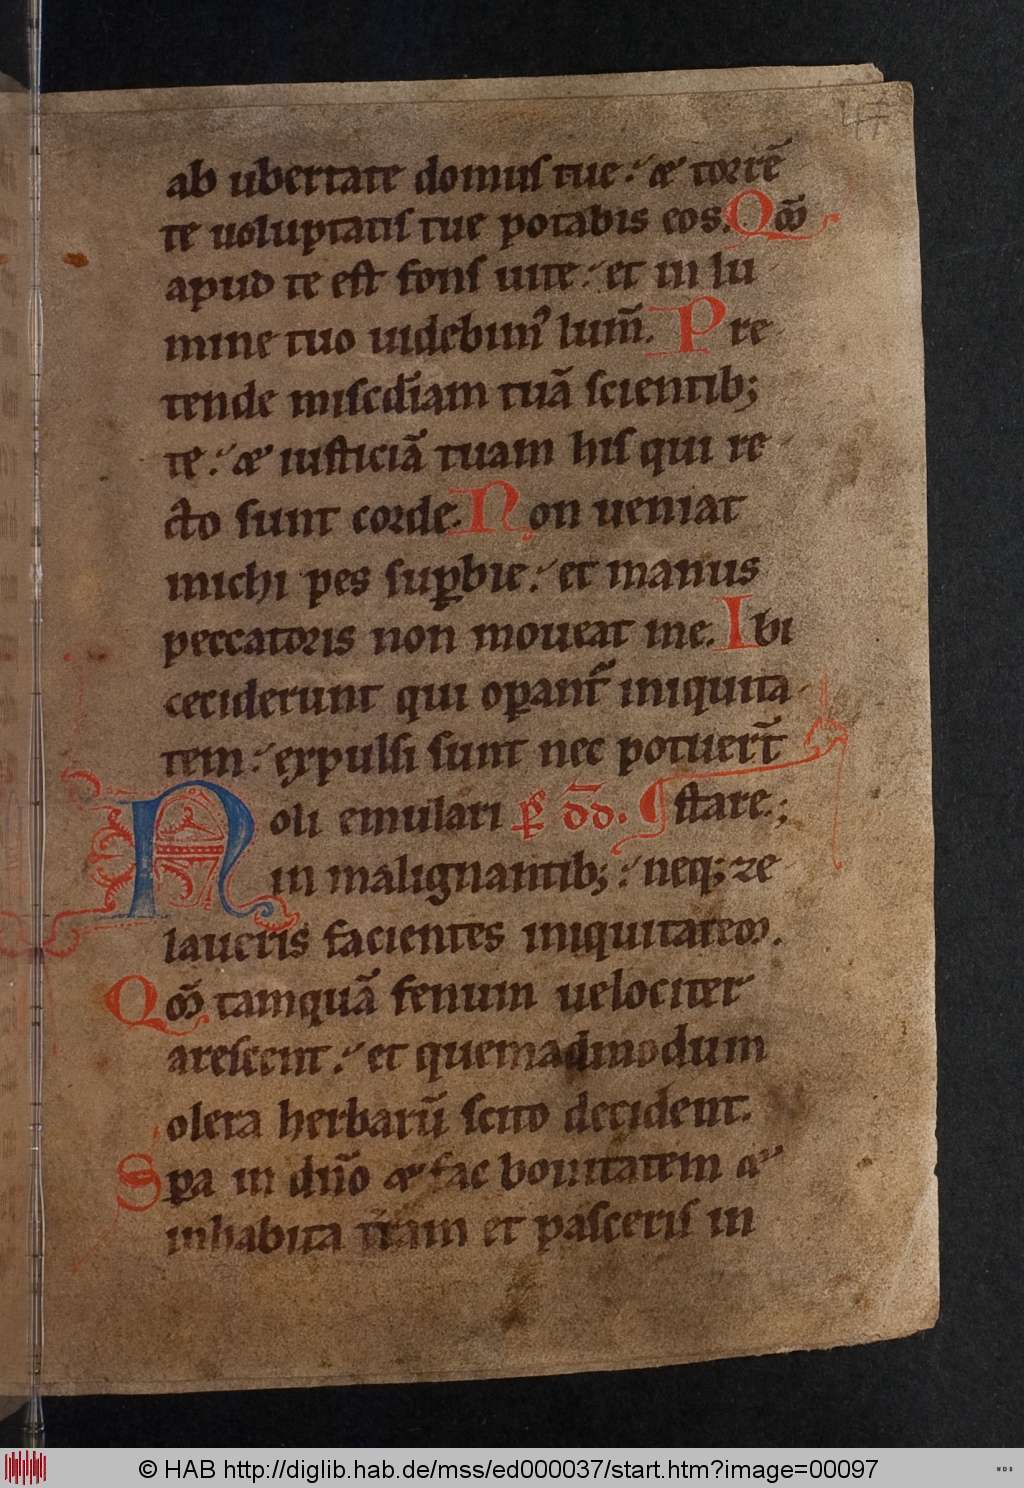 47
ab ubertate domuſ tue: & torrē
te uoluptatiſ tue potabis eos. Qm̄
apud te eſt fonſ uite: et in lu
mine tuo uidebim᷒ lum̄. Pre
tende miſcdīam tuā ſcientib;
te: & iuſticiā tuam hiſ qui re
cto ſunt corde. Non ueniat
michi pes ſuꝑbie: et manus
peccatoris non moueat me. Ibi
ceciderunt qui oꝑant᷑ iniquita
tem: expulſi ſunt nec potuer̄t
Noli emulari pˢ dd̄. ſtare.;
in malignantib;: neq; ze
laueris facientes iniquitatem.
Qm̄ tamquā fenum velociter
areſcent: et quemadmodum
olera herbarū ſcito decident.
Sꝑa in dn̄o & fac bonitatem &
inhabita tr̄am et paſceriſ in
© HAB http://diglib.hab.de/mss/ed000037/start.htm?image=00097